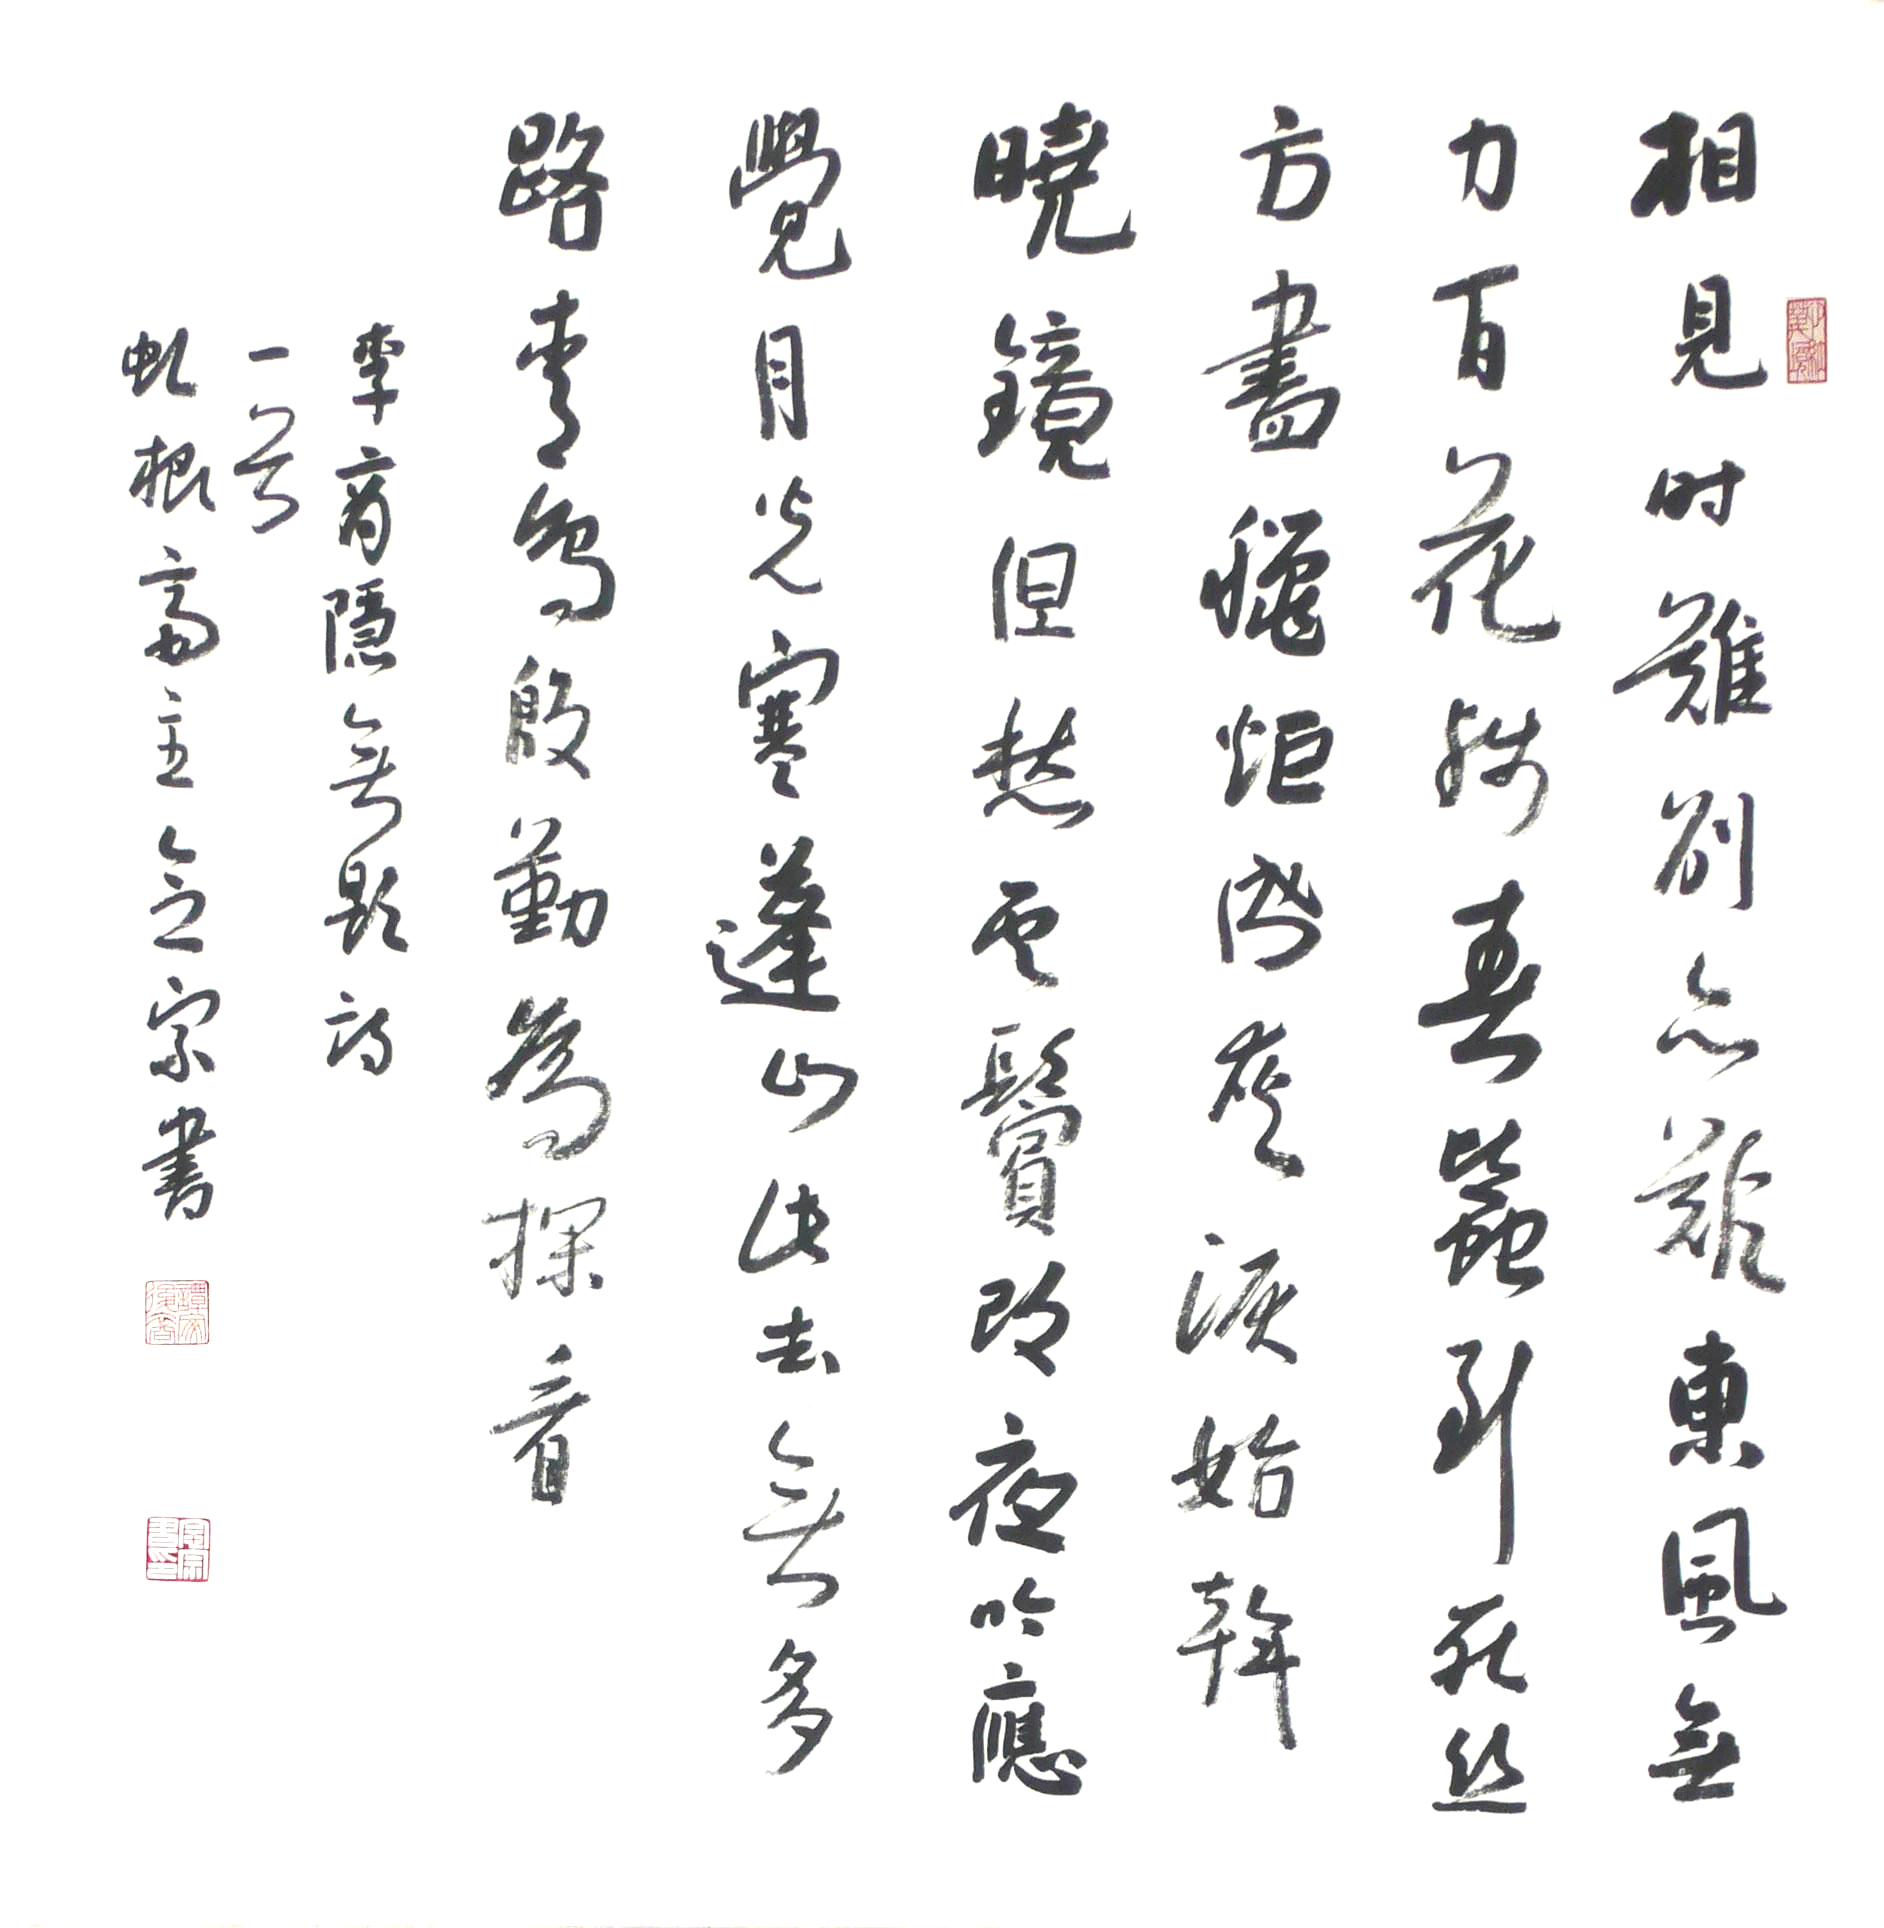 相見时難别亦難東風無
力百花殘春蠶到死丝
方盡蠟炬成灰淚始幹
曉鏡但愁雲鬢改夜吟應
覺月光寒蓬山此去無多
路青鳥殷勤為探看
李商隱無題詩
一首
虬根齋主全宗書